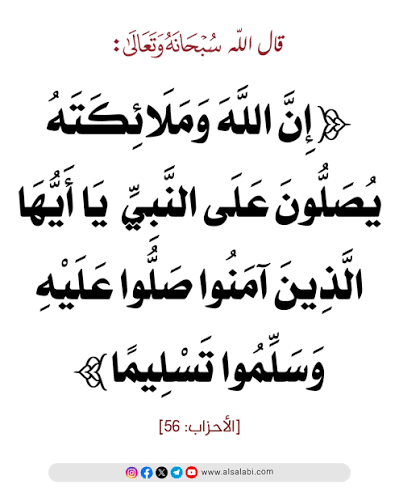 قال الله سُبْحَانَهُ وَتَعَالَىٰ:
﴿إِنَّ اللَّهَ وَمَلَائِكَتَهُ
يُصَلُّونَ عَلَى النَّبِيِّ يَا أَيُّهَا
الَّذِينَ آمَنُوا صَلُّوا عَلَيْهِ
وَسَلِّمُوا تَسْلِيمًا﴾
[الأحزاب: 56]
www.alsalabi.com